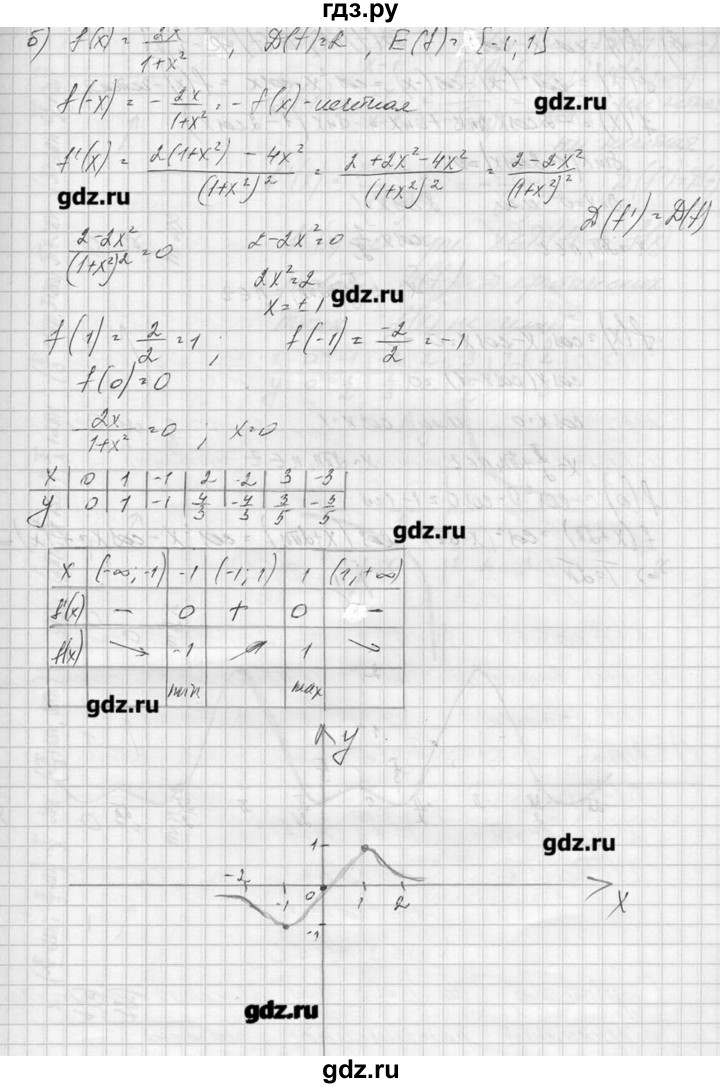 гдз.ру
б) f(x) = 2x/(1+x²) , D(f)=R , E(f)= [-1; 1]
f(-x) = - 2x/(1+x²) = - f(x) - нечетная
gdz.ru
f'(x) = (2(1+x²) - 4x²)/(1+x²)² = (2+2x²-4x²)/(1+x²)² = (2-2x²)/(1+x²)²
gdz.ru
D(f') = D(f)
(2-2x²)/(1+x²)² = 0 2-2x²=0
2x²=2
gdz.ru
x=±1
f(1) = 2/2 = 1 ; f(-1) = -2/2 = -1
f(0)=0
2x/(1+x²) = 0 ; x=0
x | 0 | 1 | -1 | 2 | -2 | 3 | -3
y | 0 | 1 | -1 | 4/3 | -4/3 | 3/5 | -3/5
gdz.ru
x | (-∞; -1) | -1 | (-1; 1) | 1 | (1, +∞)
f'(x) | - | 0 | + | 0 | -
f(x) | ↘ | -1 | ↗ | 1 | ↘
min max
gdz.ru
y
1
gdz.ru
-2 -1 0 1 2 x
-1
gdz.ru
gdz.ru